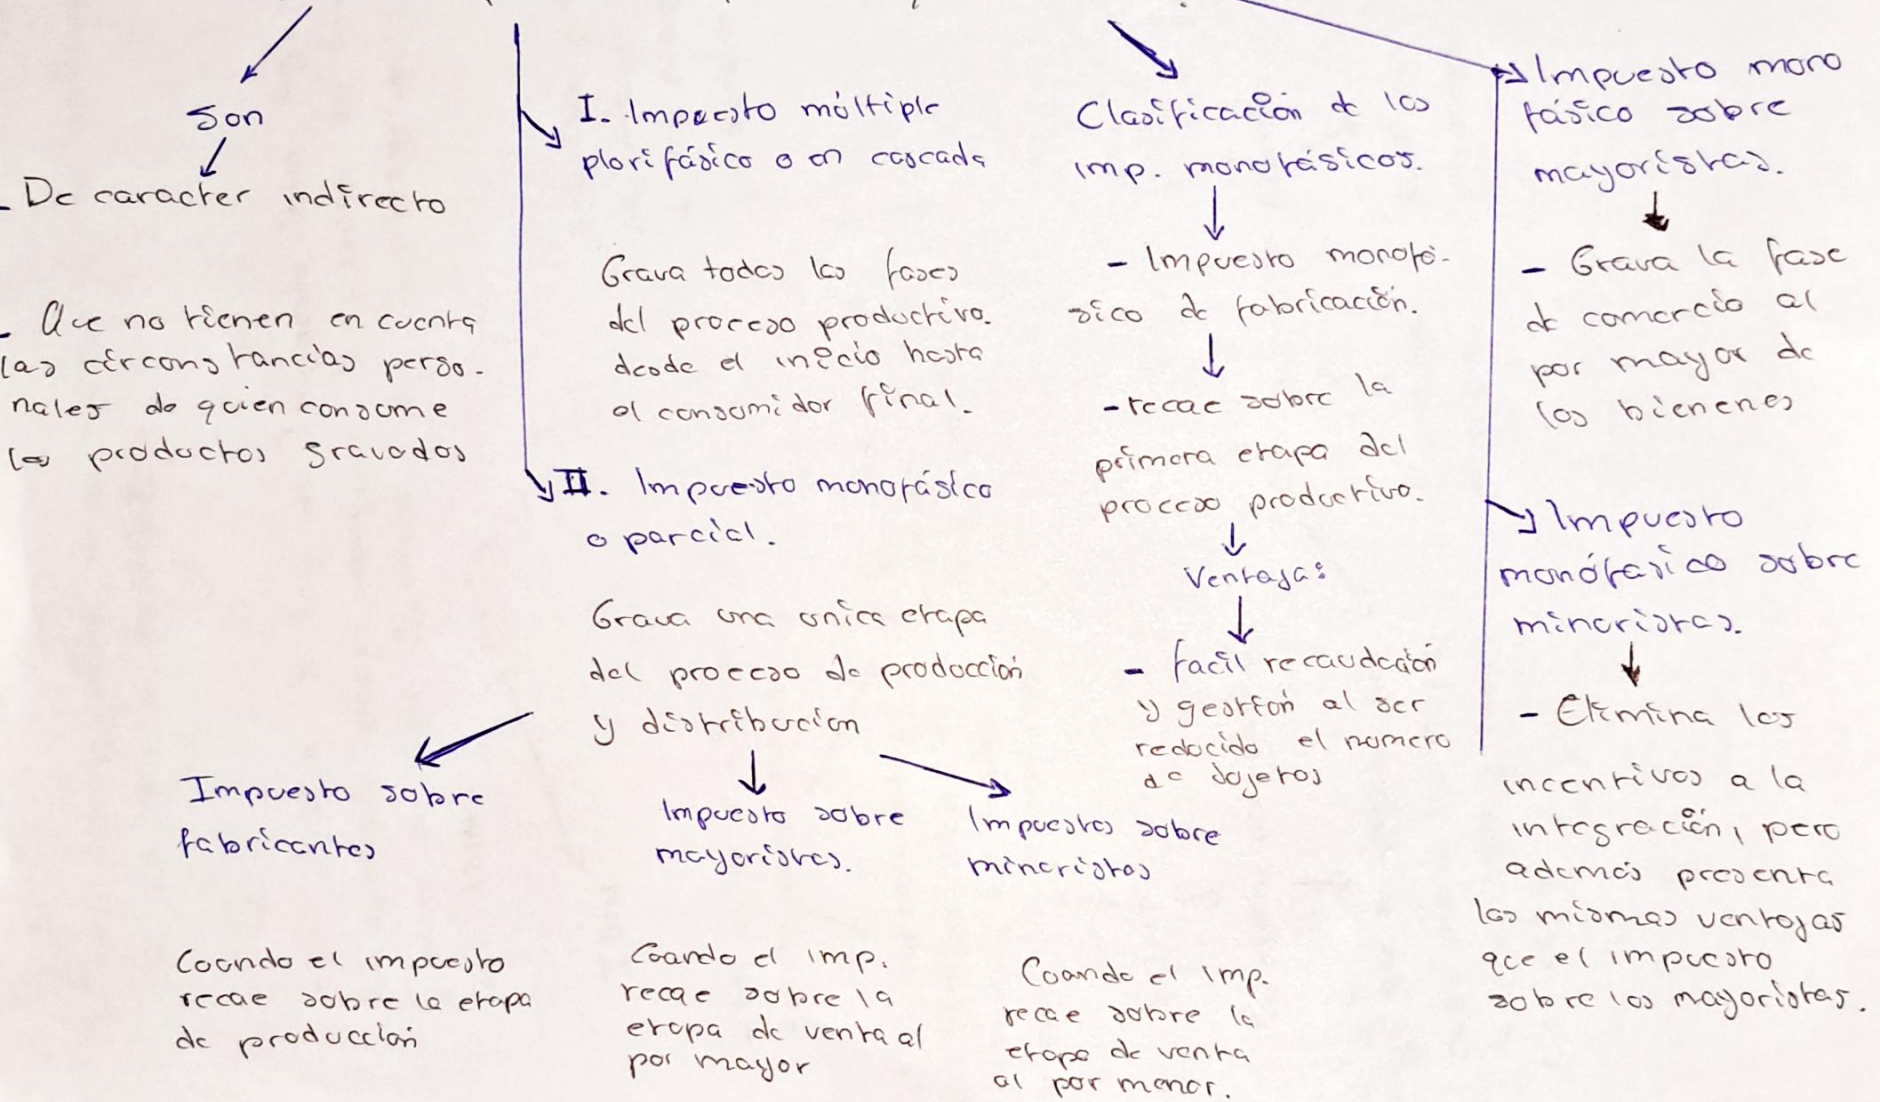 Son
- De caracter indirecto
- Que no tienen en cuenta
las circunstancias perso-
nales de quien consume
los productos gravados
I. Impuesto múltiple
plurifásico o en cascada
Grava todas las fases
del proceso productivo.
desde el inicio hasta
el consumidor final.
II. Impuesto monofásico
o parcial.
Grava una unica etapa
del proceso de producción
y distribución
Impuesto sobre
fabricantes
Cuando el impuesto
recae sobre la etapa
de producción
Impuesto sobre
mayoristas.
Cuando el imp.
recae sobre la
etapa de venta al
por mayor
Impuestos sobre
minoristas
Cuando el imp.
recae sobre la
etapa de venta
al por menor.
Clasificación de los
imp. monofásicos.
- Impuesto monofá-
sico de fabricación.
- recae sobre la
primera etapa del
proceso productivo.
Ventaja:
- facil recaudación
y gestión al ser
reducido el numero
de sujetos
Impuesto mono
fásico sobre
mayoristas.
- Grava la fase
de comercio al
por mayor de
los bienenes
Impuesto
monófasico sobre
minoristas.
- Elimina los
incentivos a la
integración, pero
además presenta
las mismas ventajas
que el impuesto
sobre los mayoristas.